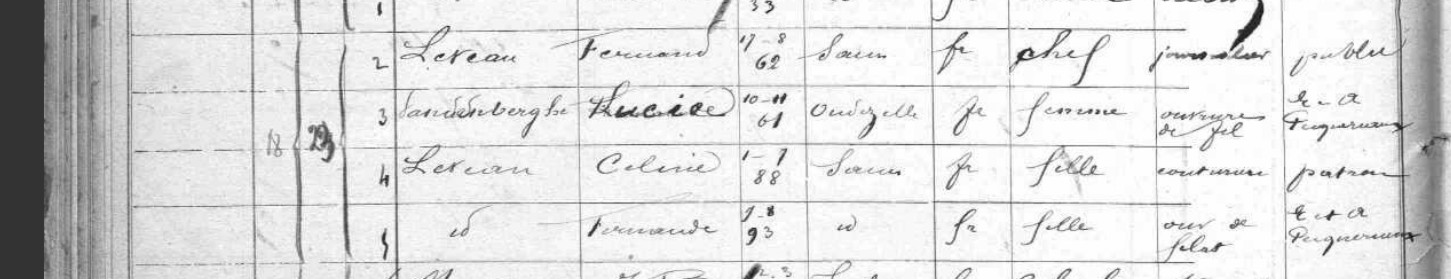 1 33
2 Leveau Fernand 17-8 62 fr chef journalier public
3 Vandenberghe Lucie 10-11 61 Oudezelle fr femme ouvrière de fil E-A
18 23
4 Leveau Celine 1-7 88 fr fille couturière patron
5 id Fernande 7-8 93 id fr fille ouv de filat E et A